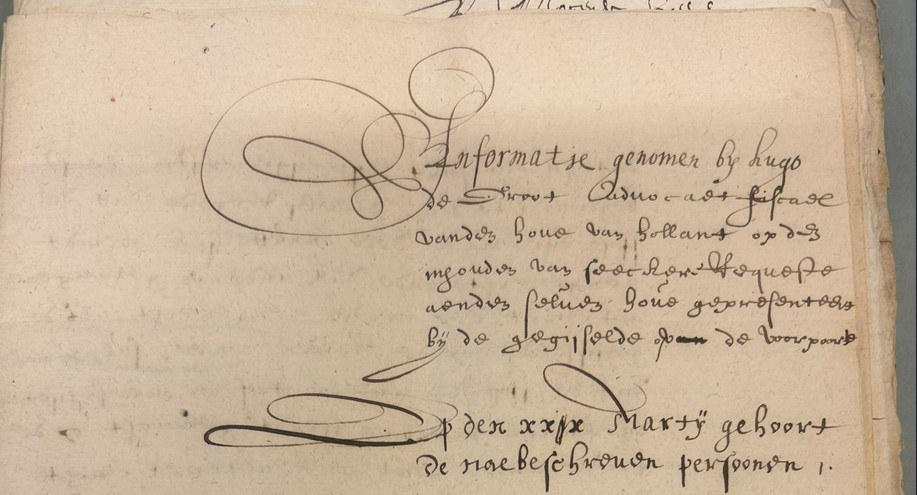 Informatie genomen by hugo
de Groot Advocaet fiscael
vanden hove van hollant op den
inhouden van seeckere Requeste
aenden selven hove gepresenteert
by de gegijselde op de voorpoort
Op den xxix Martij gehoort
de naebeschreven persoonen